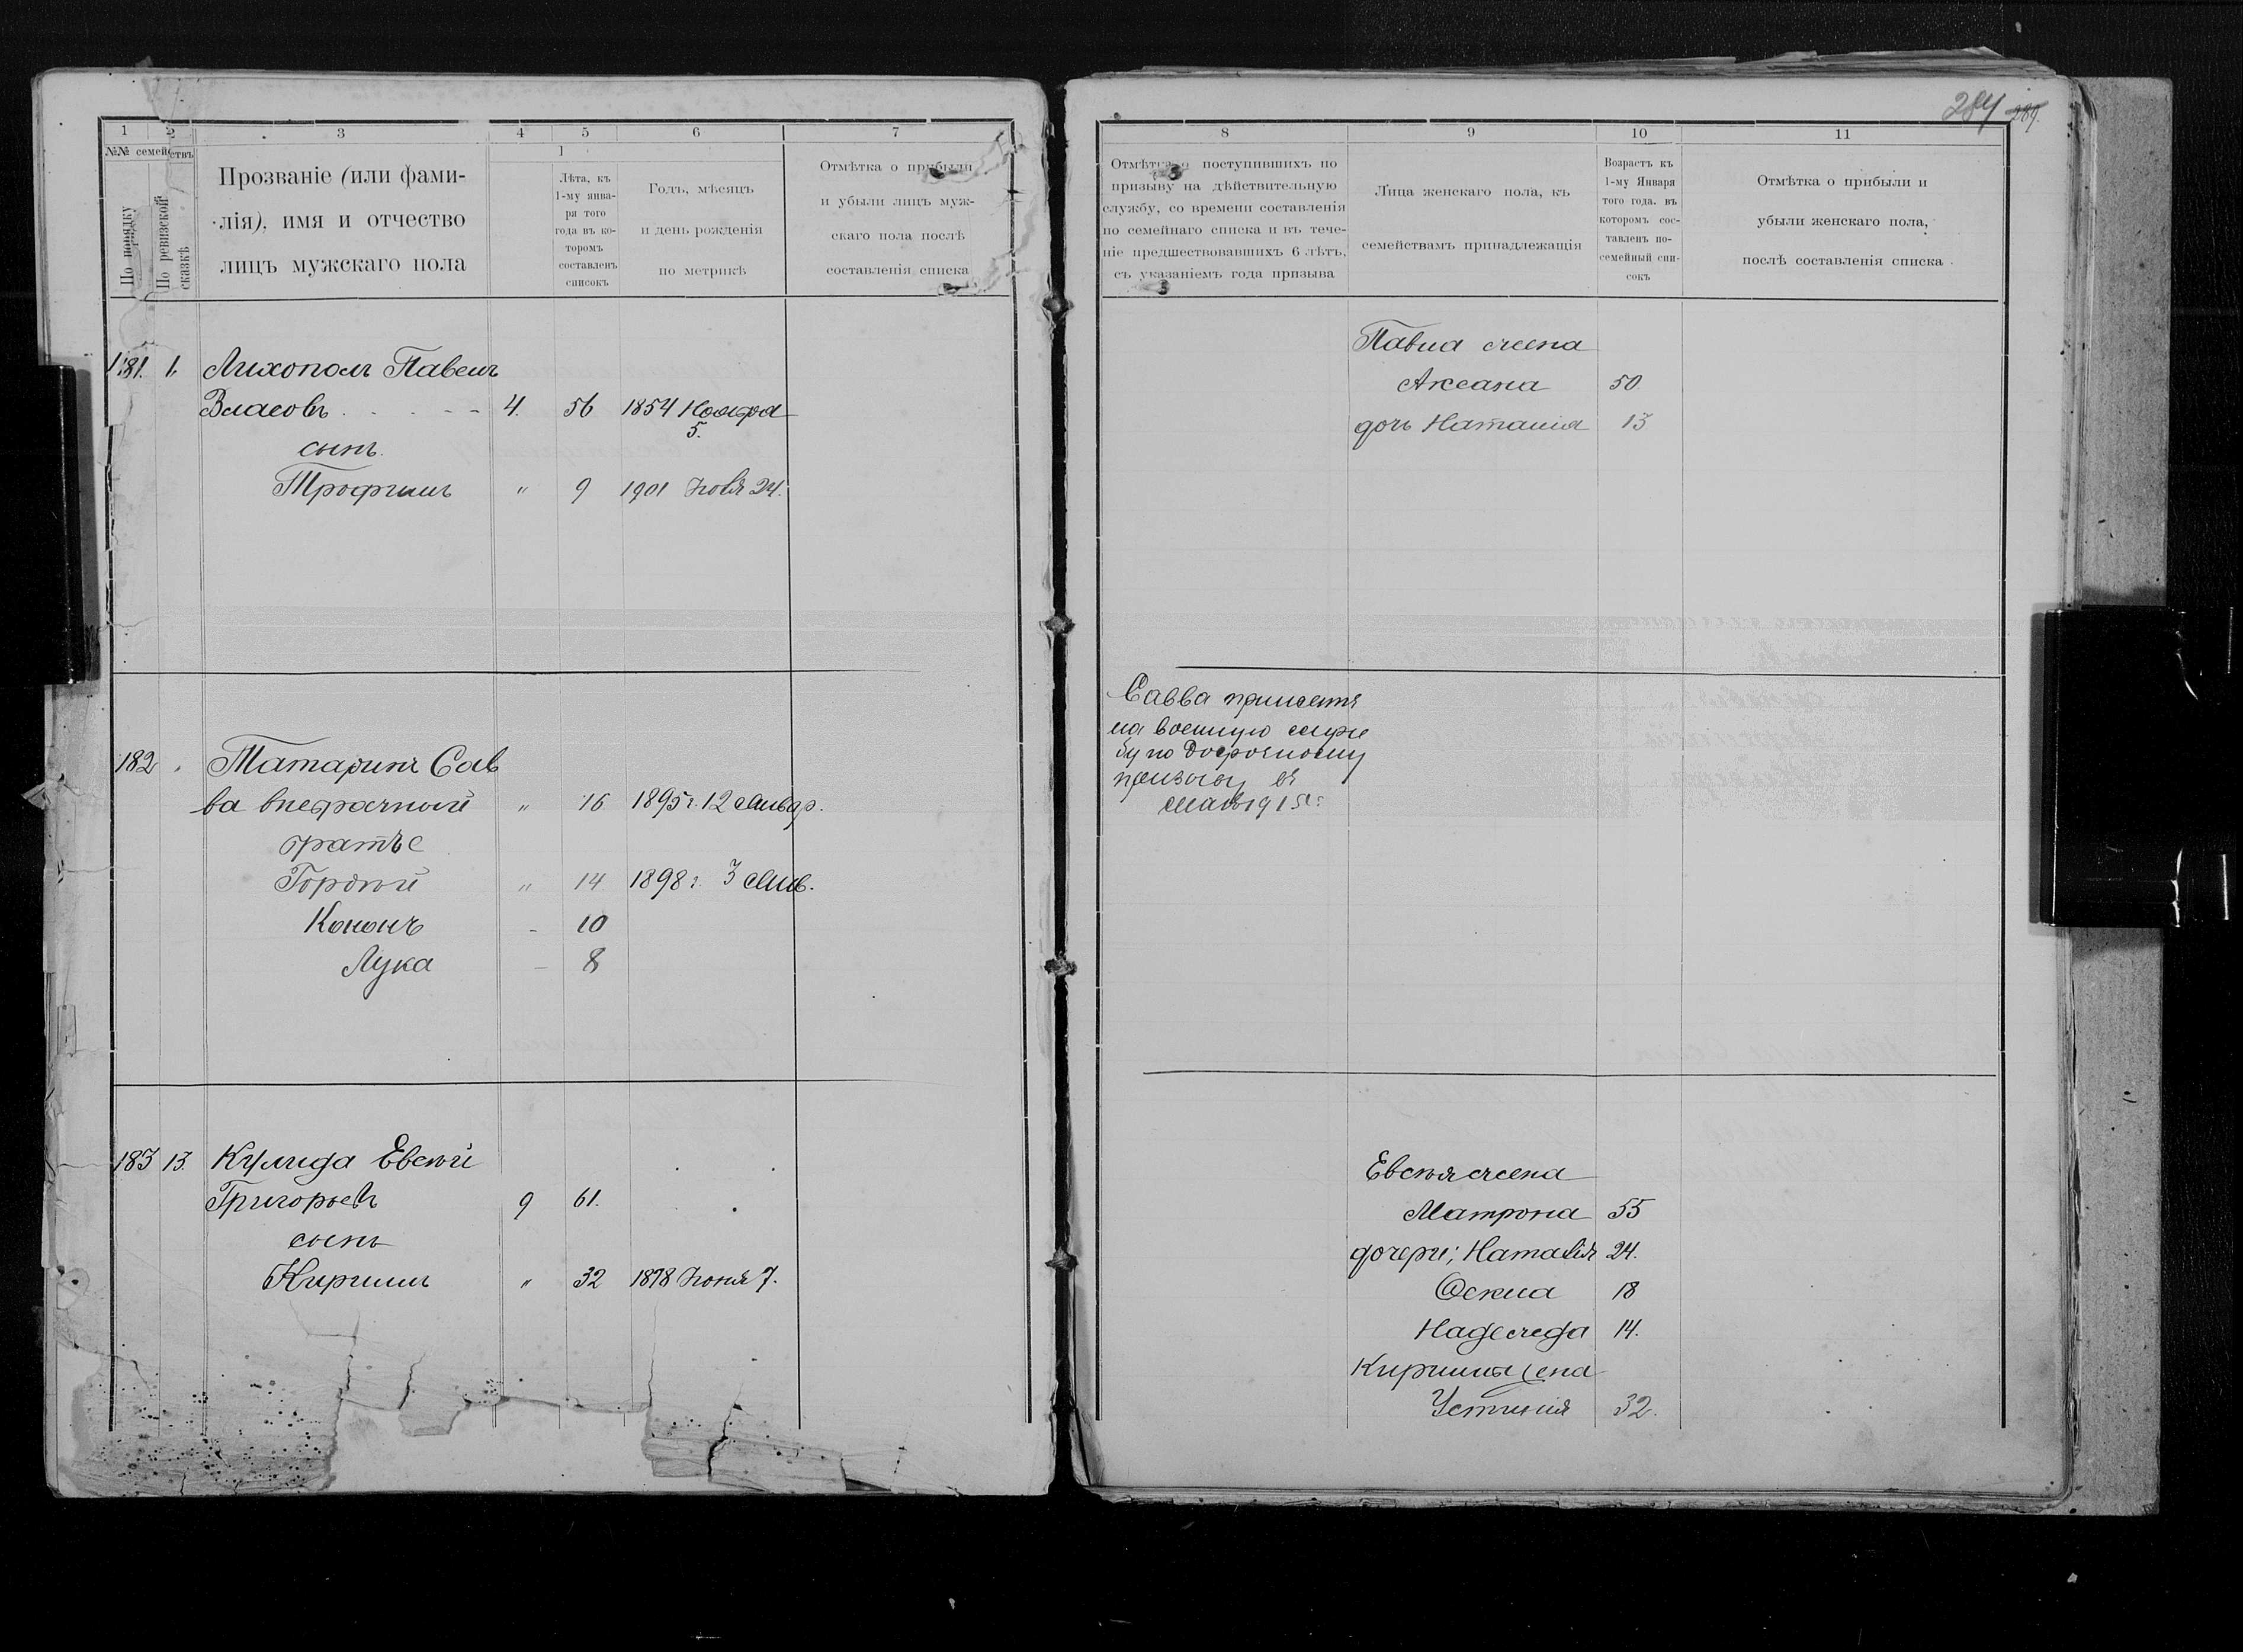 1 2 3 4 5 6 7
№№ семействъ
По порядку
По ревизской сказкѣ
Прозваніе (или фами-
лія), имя и отчество
лицъ мужскаго пола
1
Лѣта, къ
1-му янва-
ря того
года въ ко-
торомъ
составленъ
списокъ
Годъ, мѣсяцъ
и день рожденія
по метрикѣ
Отмѣтка о прибыли
и убыли лицъ муж-
скаго пола послѣ
составленія списка
181. 1. Лихополъ Павелъ
Власовъ 4. 56 1854 Ноября
5.
сынъ
Трофимъ " 9 1901 24.
182 Татаринъ Сав
ва внебрачный " 16 1895 г. 12 Январ.
братъе
Гордѣй " 14 1898 г. 3 Янв.
Кононъ - 10
Лука - 8
183 13. Кулида Евсѣй
Григорьевъ 9 61.
сынъ
Кирилъ " 32 1878 Іюня 7.
284 289.
8 9 10 11
Отмѣтка о поступившихъ по
призыву на дѣйствительную
службу, со времени составленія
по семейнаго списка и въ тече-
ніе предшествовавшихъ 6 лѣтъ,
съ указаніемъ года призыва
Лица женскаго пола, къ
семействамъ принадлежащія
Возрастъ къ
1-му Января
того года. въ
которомъ сос-
тавленъ по-
семейный спи-
сокъ
Отмѣтка о прибыли и
убыли женскаго пола,
послѣ составленія списка
Павла жена
Аксана 50
дочь Наталия 13
Савва принятъ
на военную служ
бу по досрочному
призыву въ
маѣ 1915 г.
Евсѣя жена
Матрона 55
дочери; Наталія 24.
Ѳекла 18
Надежда 14.
Кирилла жена
Устинія 32.